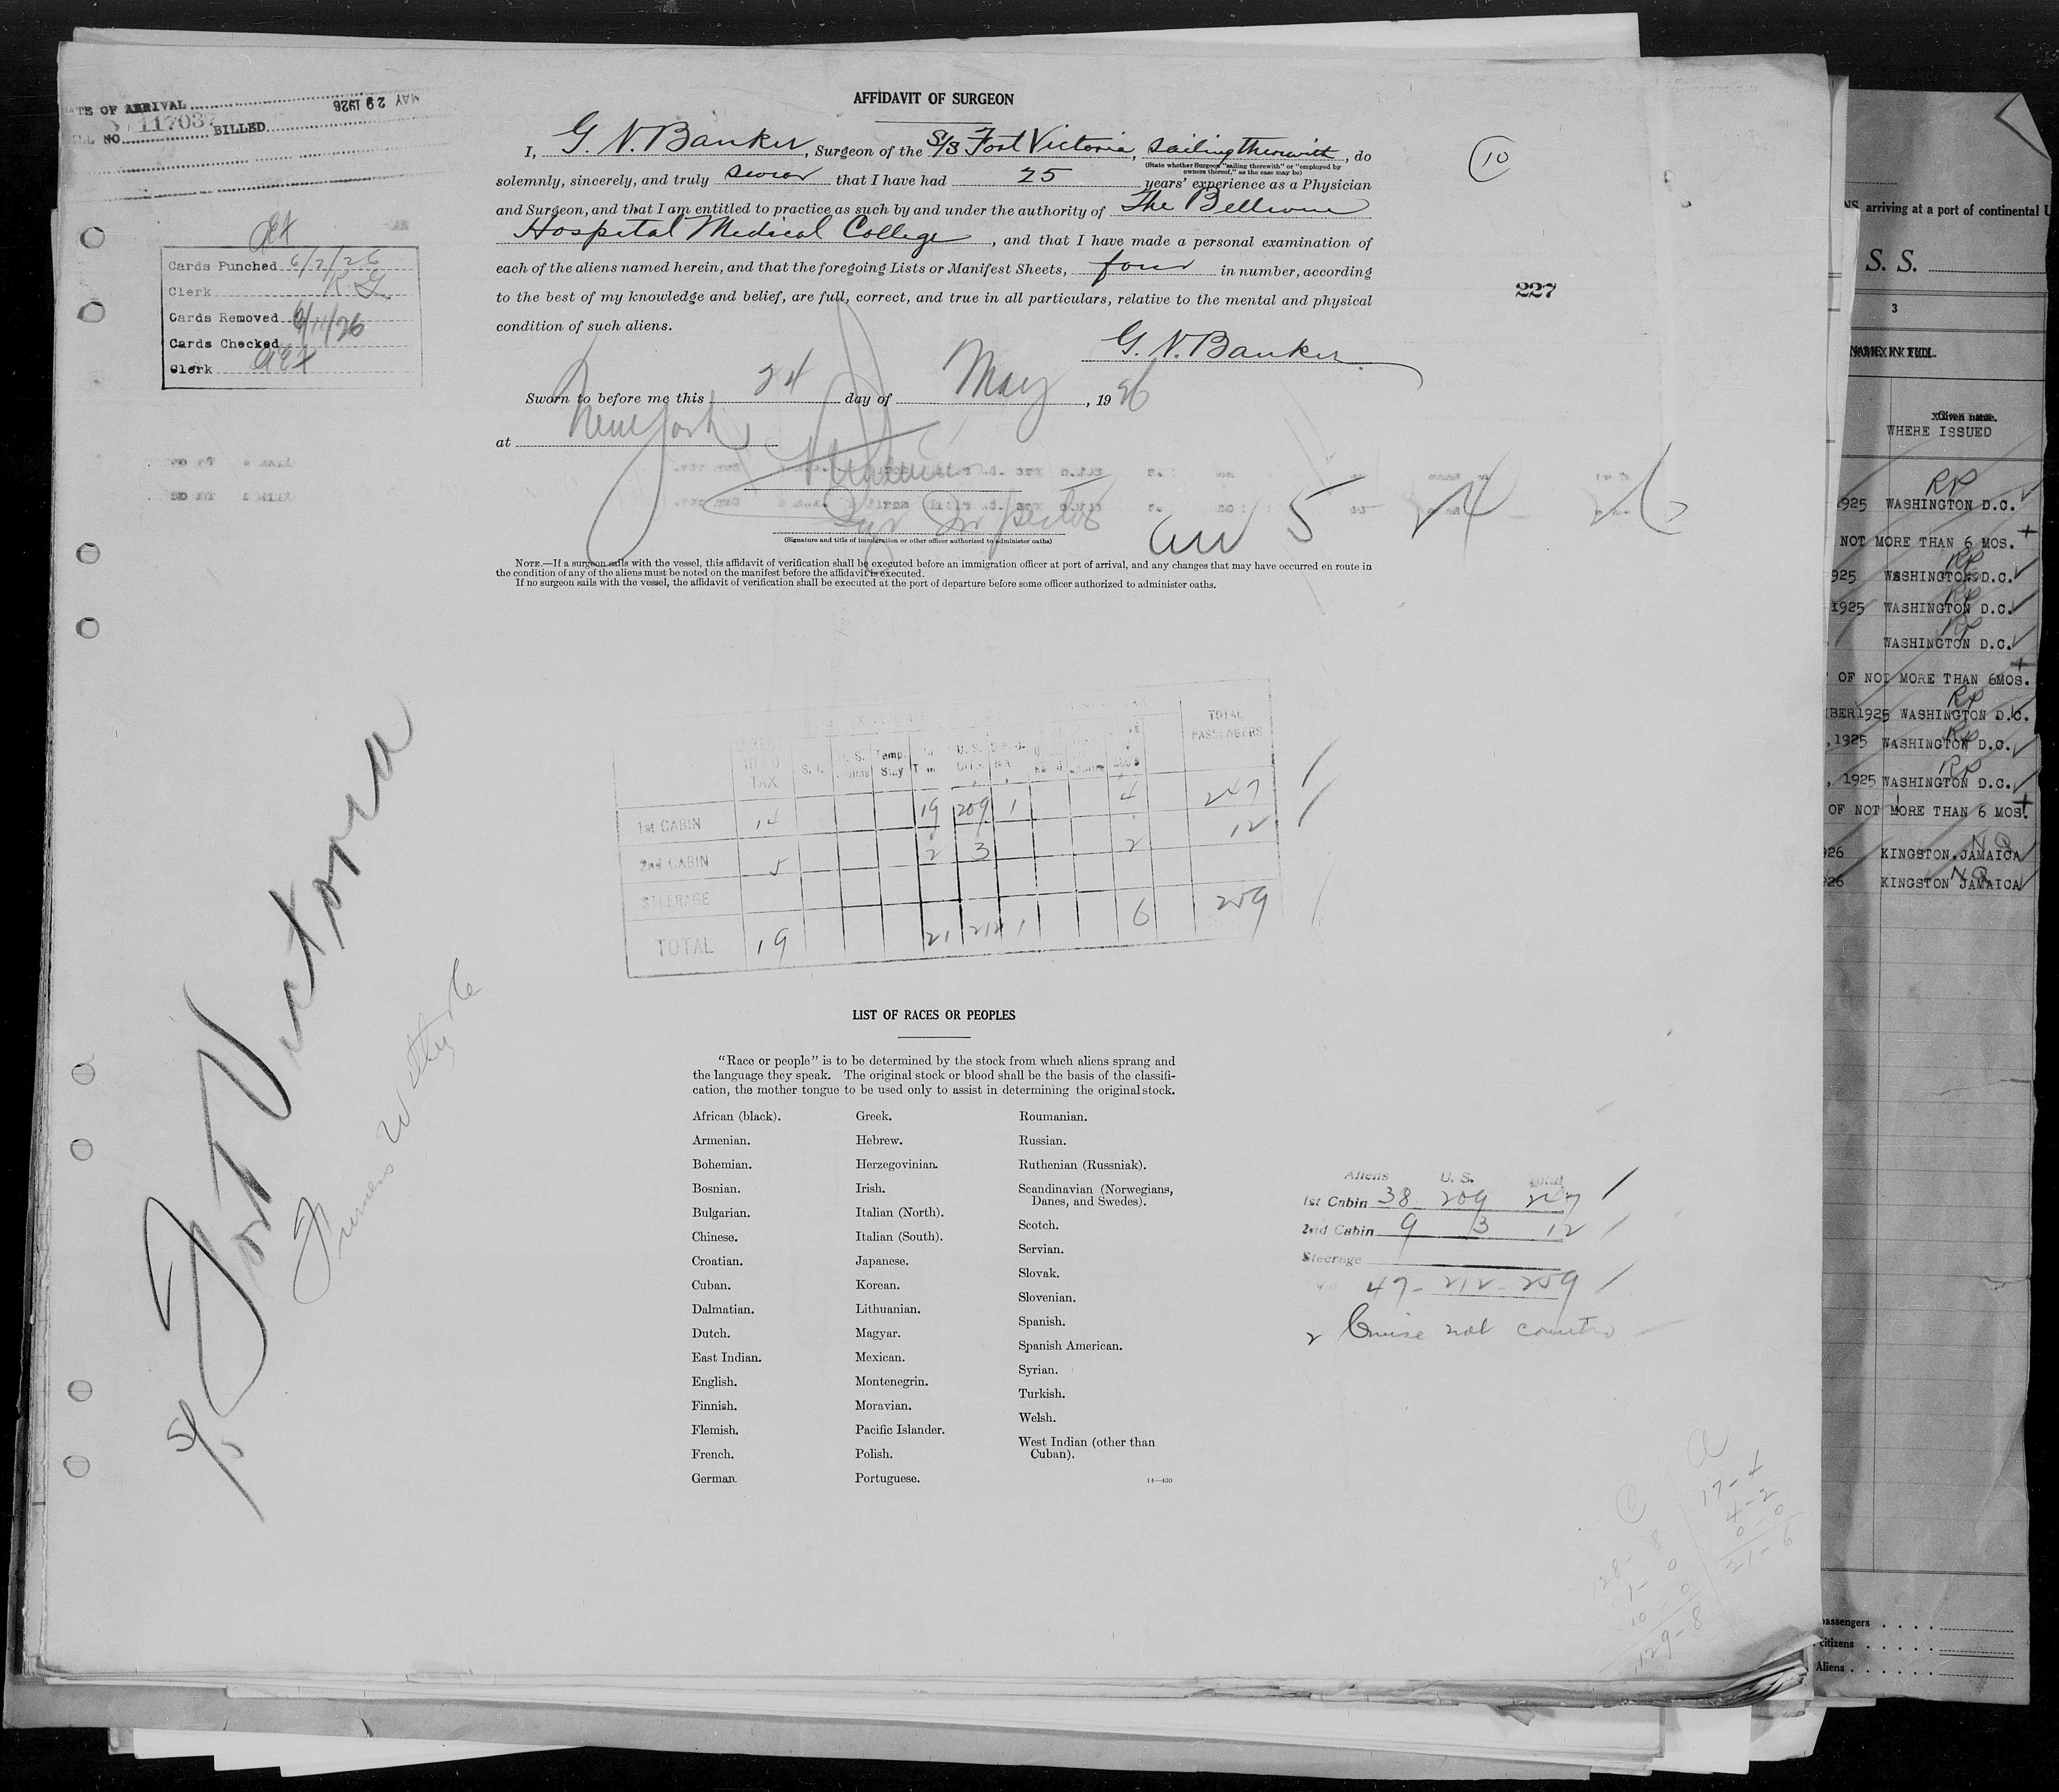 MAY 29 1926
117037 BILLED
AFFIDAVIT OF SURGEON
I, G. N. Banker, Surgeon of the S/S Fort Victoria, sailing therewith, do
(State whether Surgeon "sailing therewith" or "employed by
owners thereof," as the case may be)
solemnly, sincerely, and truly swear that I have had 25 years' experience as a Physician
and Surgeon, and that I am entitled to practice as such by and under the authority of The Bellevue
Hospital Medical College, and that I have made a personal examination of
each of the aliens named herein, and that the foregoing Lists or Manifest Sheets, four in number, according
to the best of my knowledge and belief, are full, correct, and true in all particulars, relative to the mental and physical
condition of such aliens.
G. N. Banker
Sworn to before me this 24 day of May, 1926
at New York
(Signature and title of immigration or other officer authorized to administer oaths)
5 24 26
NOTE.—If a surgeon sails with the vessel, this affidavit of verification shall be executed before an immigration officer at port of arrival, and any changes that may have occurred en route in
the condition of any of the aliens must be noted on the manifest before the affidavit is executed.
If no surgeon sails with the vessel, the affidavit of verification shall be executed at the port of departure before some officer authorized to administer oaths.
10
227
Cards Punched 6/2/26
Clerk
Cards Removed 6/11/26
Cards Checked
Clerk
S/S Fort Victoria
TOTAL PASSENGERS
1st CABIN 14 19 209 1 4 247
2nd CABIN 5 2 3 2 12
STEERAGE
TOTAL 19 21 212 1 6 259
LIST OF RACES OR PEOPLES
"Race or people" is to be determined by the stock from which aliens sprang and
the language they speak. The original stock or blood shall be the basis of the classifi-
cation, the mother tongue to be used only to assist in determining the original stock.
African (black).
Armenian.
Bohemian.
Bosnian.
Bulgarian.
Chinese.
Croatian.
Cuban.
Dalmatian.
Dutch.
East Indian.
English.
Finnish.
Flemish.
French.
German.
Greek.
Hebrew.
Herzegovinian.
Irish.
Italian (North).
Italian (South).
Japanese.
Korean.
Lithuanian.
Magyar.
Mexican.
Montenegrin.
Moravian.
Pacific Islander.
Polish.
Portuguese.
Roumanian.
Russian.
Ruthenian (Russniak).
Scandinavian (Norwegians,
Danes, and Swedes).
Scotch.
Servian.
Slovak.
Slovenian.
Spanish.
Spanish American.
Syrian.
Turkish.
Welsh.
West Indian (other than
Cuban).
14—430
Aliens U. S. Total
1st Cabin 38 209 247
2nd Cabin 9 3 12
Steerage
47 - 212 - 259
2 Cruise not
C
128 - 8
1 - 0
129 - 8
a
17 - 4
4 - 2
0 - 0
21 - 6
arriving at a port of continental U
S. S.
3
Given name.
WHERE ISSUED
1925 WASHINGTON D.C.
NOT MORE THAN 6 MOS.
925 WASHINGTON D.C.
1925 WASHINGTON D.C.
WASHINGTON D.C.
OF NOT MORE THAN 6MOS.
BER1925 WASHINGTON D.C.
,1925 WASHINGTON D.C.
, 1925 WASHINGTON D.C.
OF NOT MORE THAN 6 MOS.
926 KINGSTON JAMAICA
926 KINGSTON JAMAICA
passengers
citizens
Aliens